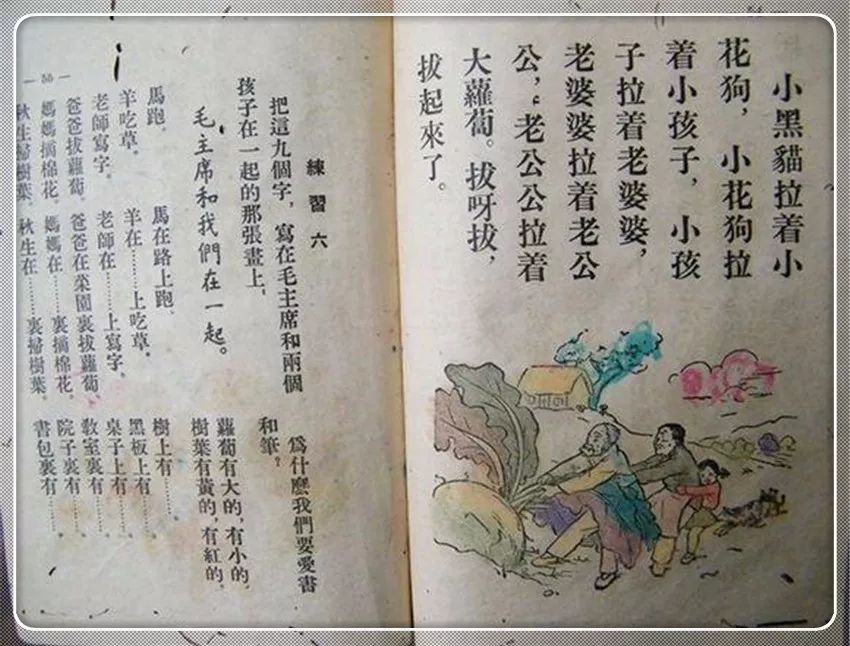 小黑貓拉着小
花狗，小花狗拉
着小孩子，小孩
子拉着老婆婆，
老婆婆拉着老公
公，老公公拉着
大蘿蔔。拔呀拔，
拔起來了。
練習六
把這九個字，寫在毛主席和兩個
孩子在一起的那張畫上。
毛主席和我們在一起。
馬跑。 馬在路上跑。
羊吃草。 羊在……上吃草。
老師寫字。 老師在……上寫字。
爸爸拔蘿蔔。 爸爸在菜園裏拔蘿蔔
媽媽摘棉花。 媽媽在……裏摘棉花。
秋生掃樹葉。 秋生在……裏掃樹葉。
爲什麽我們要愛書
和筆？
蘿蔔有大的，有小的，
樹葉有黃的，有紅的。
樹上有……。
黑板上有……。
桌子上有……。
教室裏有……。
院子裏有……。
書包裏有……。